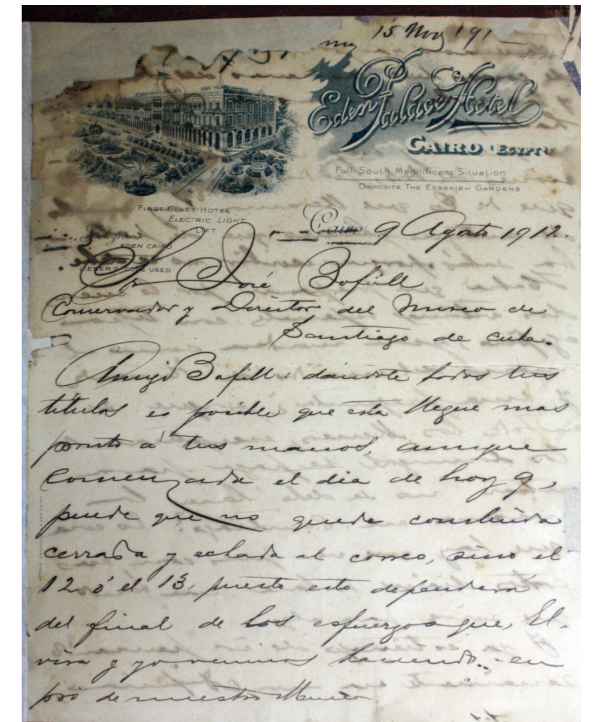 15 Nov 191
Eden Palace Hotel
CAIRO (EGYPT)
Full South Magnificent Situation
OPPOSITE THE ESBEKIEH GARDENS
FIRST CLASS HOTEL
ELECTRIC LIGHT
LIFT
EDEN CAIRO
CODE USED
Cairo 9 Agosto 1912.
Sr José Bofill
Conservador y Director del Museo de
Santiago de Cuba.
Amigo Bofill: dandote todos tus
titulos es posible que esta llegue mas
pronto á tus manos, aunque
comenzada el dia de hoy 9,
puede que no quede concluida
cerrada y echada al correo, sino el
12 ó el 13, puesto esto dependerá
del final de los esfuerzos que El-
vira y yo venimos haciendo en
pro de nuestro Museo